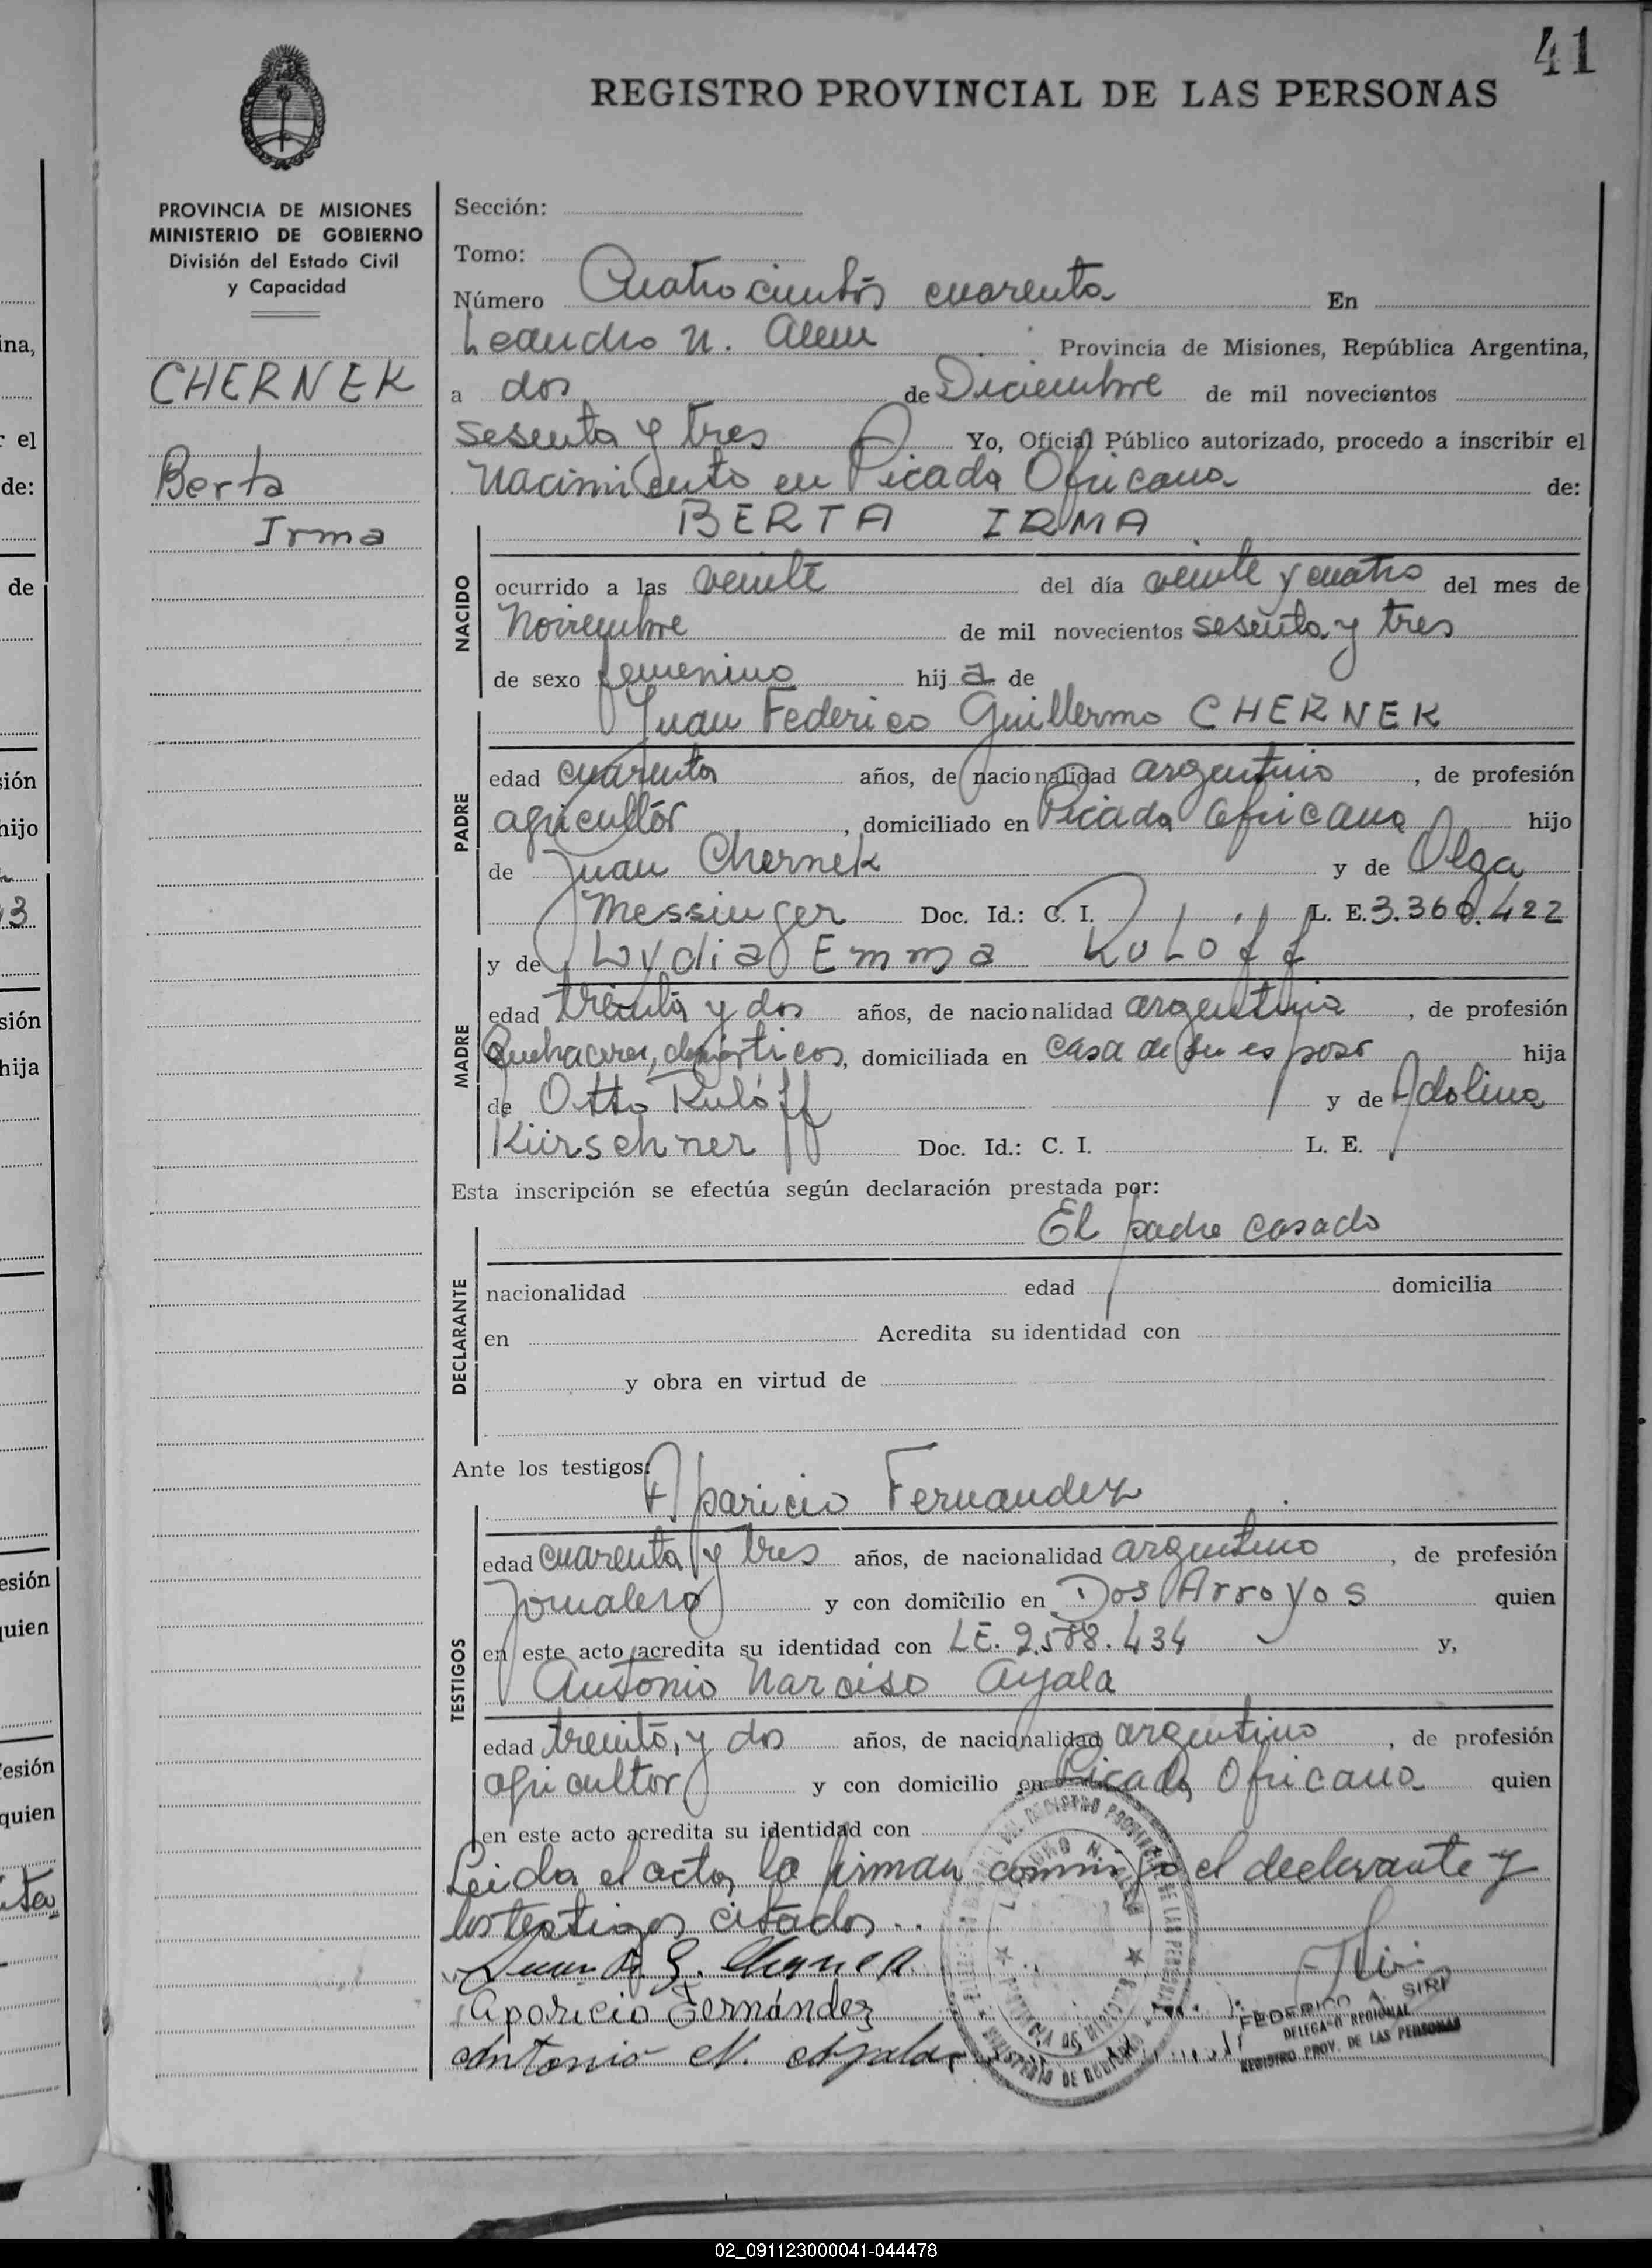 41
REGISTRO PROVINCIAL DE LAS PERSONAS
PROVINCIA DE MISIONES
MINISTERIO DE GOBIERNO
División del Estado Civil
y Capacidad
CHERNEK
Berta
Irma
Sección:
Tomo:
Número Cuatrocientos cuarenta En
Leandro N. Alem Provincia de Misiones, República Argentina,
a dos de Diciembre de mil novecientos
sesenta y tres Yo, Oficial Público autorizado, procedo a inscribir el
Nacimiento en Picada Africana de:
BERTA IRMA
NACIDO
ocurrido a las veinte del día veinte y cuatro del mes de
Noviembre de mil novecientos sesenta y tres
de sexo femenino hija de
Juan Federico Guillermo CHERNEK
PADRE
edad cuarenta años, de nacionalidad argentino, de profesión
agricultor, domiciliado en Picada Africana hijo
de Juan Chernek y de Olga
Messinger Doc. Id.: C. I. L. E. 3.360.422
y de Lydia Emma Ruloff
MADRE
edad treinta y dos años, de nacionalidad argentina, de profesión
Quehaceres domésticos, domiciliada en casa de su esposo hija
de Otto Rulóff y de Adolina
Kürschner Doc. Id.: C. I. L. E.
Esta inscripción se efectúa según declaración prestada por:
El padre casado
DECLARANTE
nacionalidad edad domicilia
en Acredita su identidad con
y obra en virtud de
Ante los testigos:
Aparicio Fernandez
TESTIGOS
edad cuarenta y tres años, de nacionalidad argentino, de profesión
Jornalero y con domicilio en Dos Arroyos quien
en este acto acredita su identidad con LE. 2.588.434 y,
Antonio Narciso Ayala
edad treinta y dos años, de nacionalidad argentino, de profesión
agricultor y con domicilio en Picada Africana quien
en este acto acredita su identidad con
Leida el acta, la firman conmigo el declarante y
los testigos citados..
Juan F. G. Chernek
Aparicio Fernández
Antonio N. Ayala
FEDERICO A. SIRI
DELEGADO REGIONAL
REGISTRO PROV. DE LAS PERSONAS
02_091123000041-044478